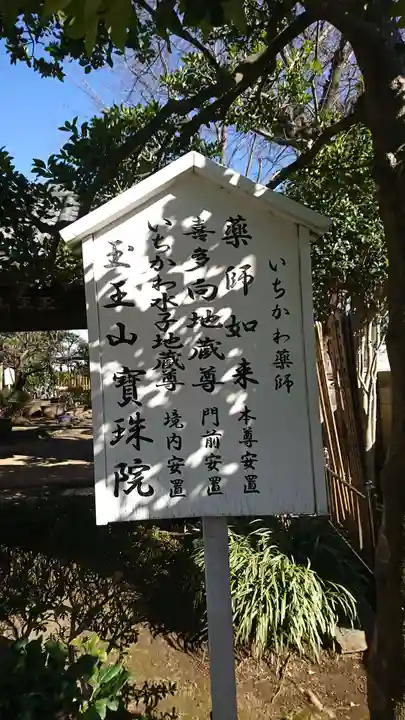 いちかわ薬師
薬師如来 本尊安置
喜多向地蔵尊 門前安置
いちかわ水子地蔵尊 境内安置
玉王山寶珠院